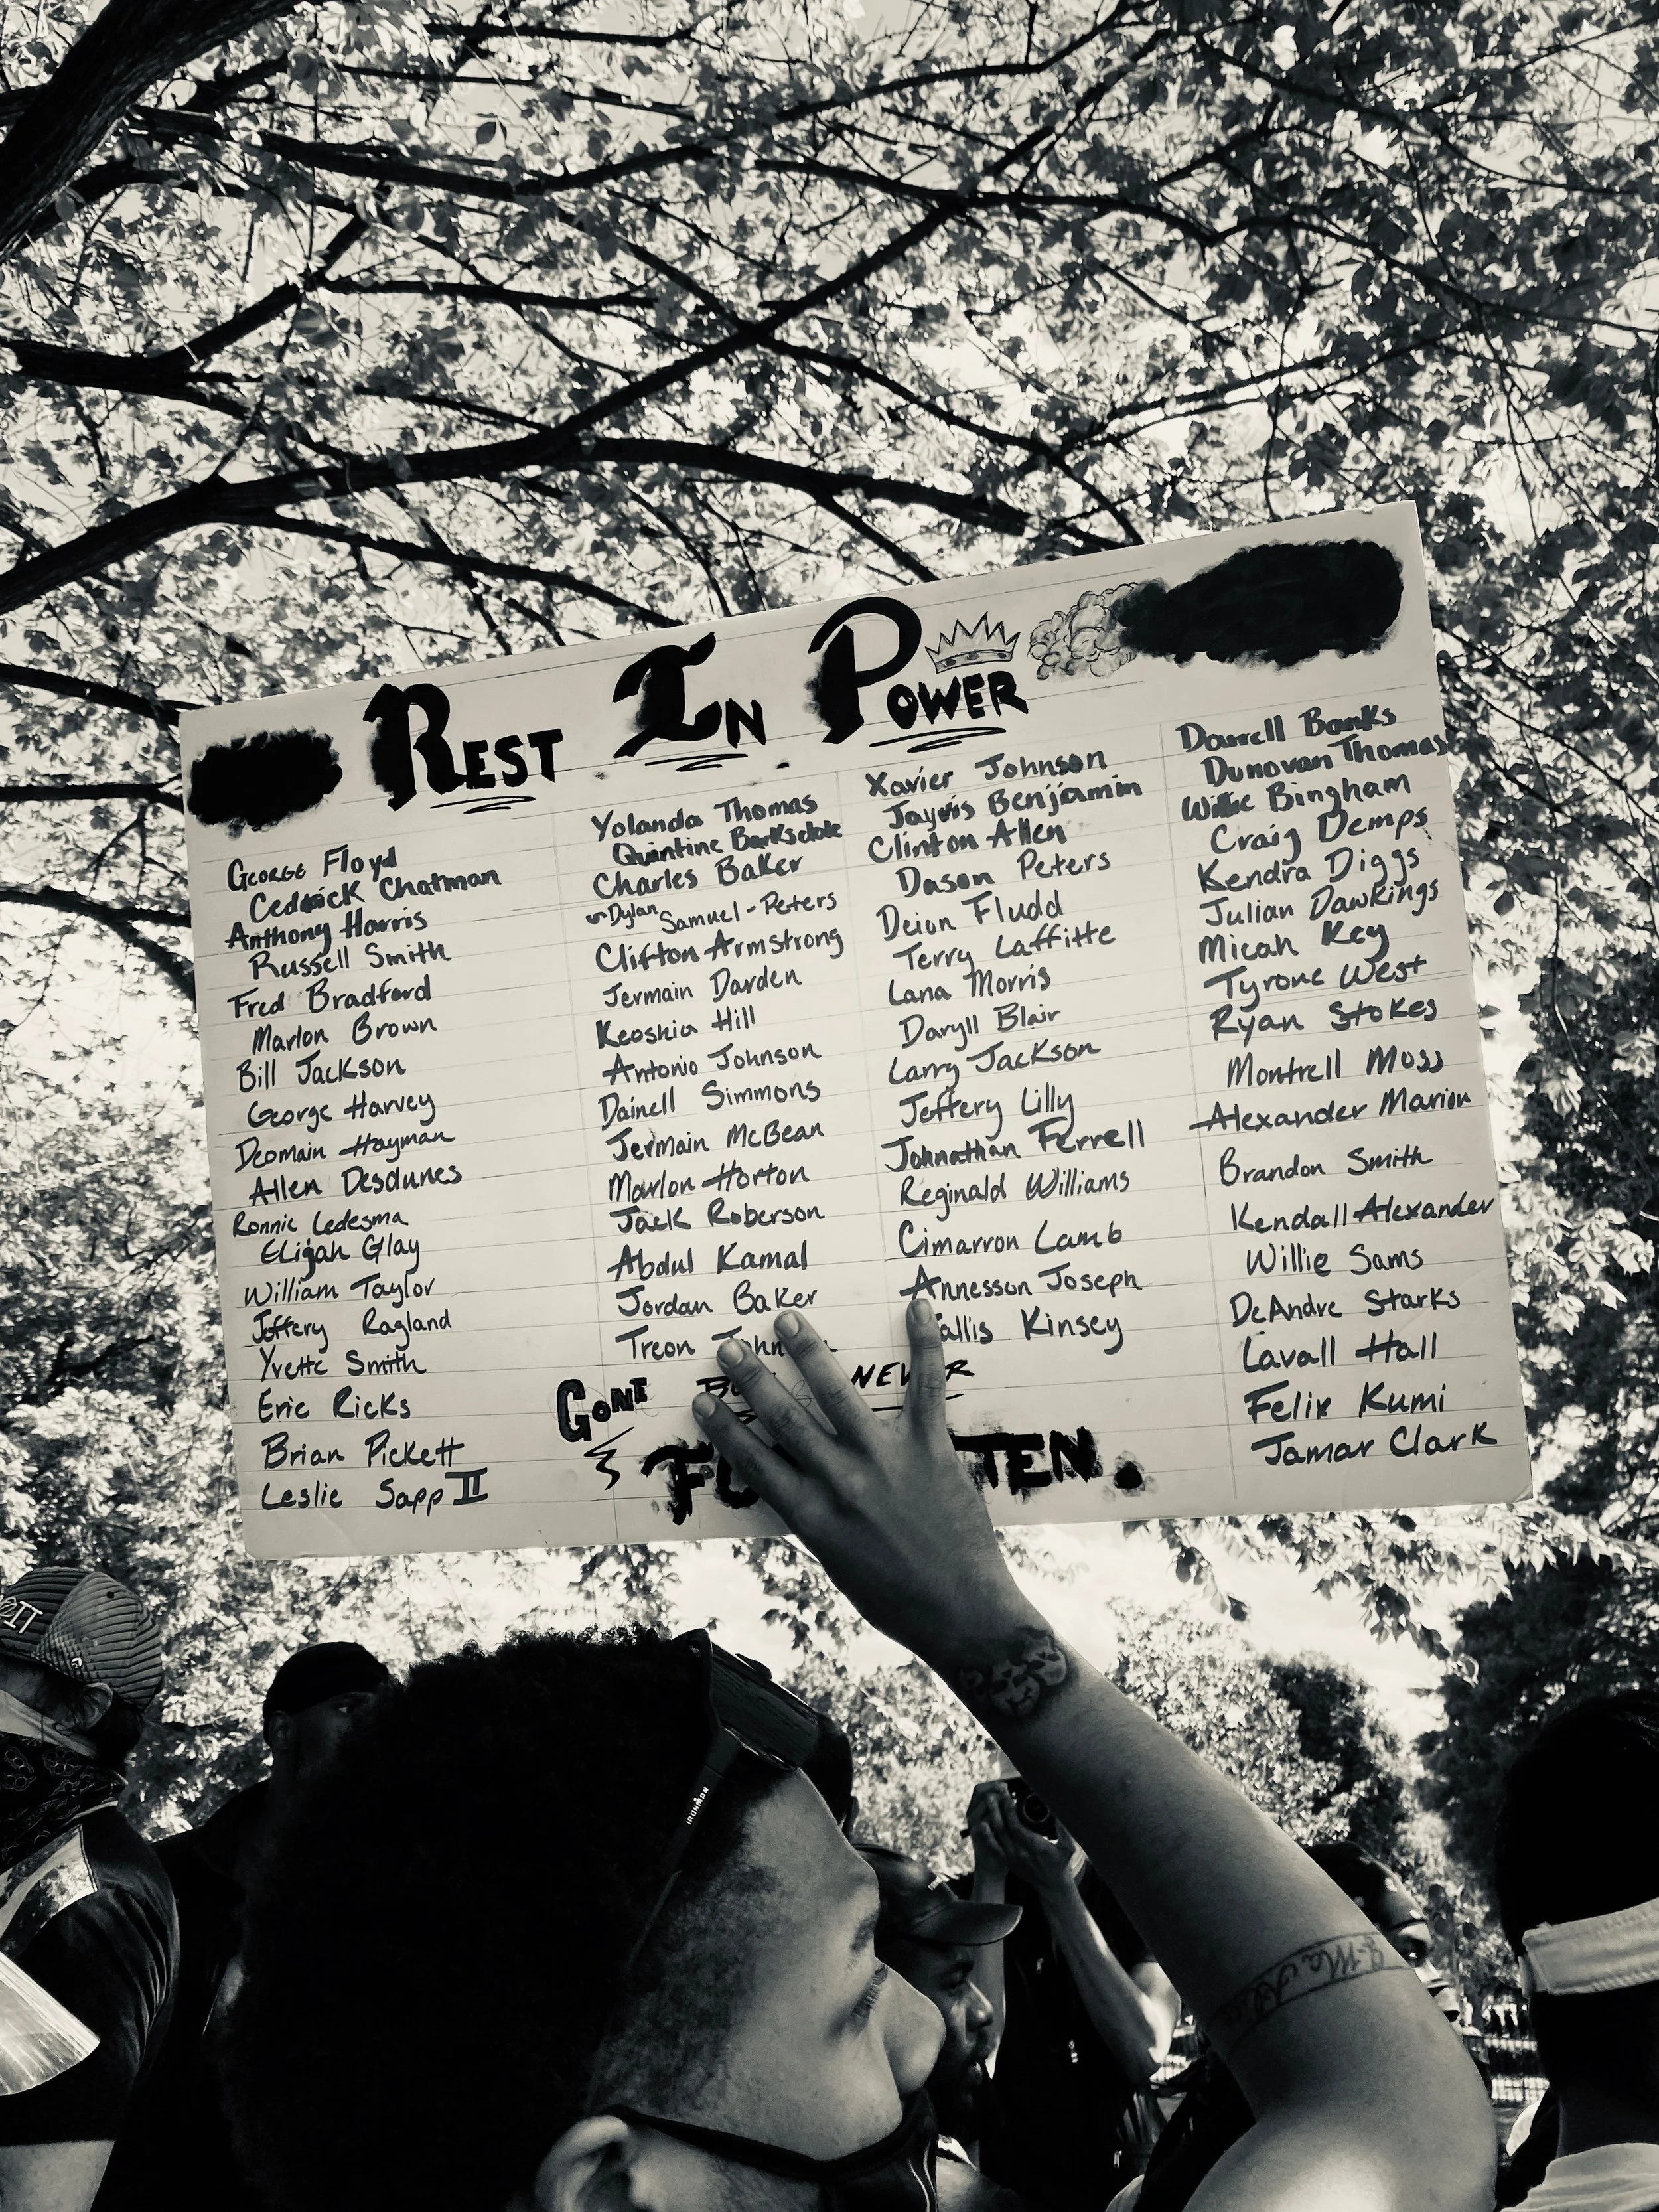 REST IN POWER
GEORGE Floyd
Cedrick Chatman
Anthony Harris
Russell Smith
Fred Bradford
Marlon Brown
Bill Jackson
George Harvey
Deomain Hayman
Allen Desdunes
Ronnie Ledesma
Elijah Glay
William Taylor
Jeffery Ragland
Yvette Smith
Eric Ricks
Brian Pickett
Leslie Sapp II
Yolanda Thomas
Quintine Barksdale
Charles Baker
Dylan Samuel-Peters
Clifton Armstrong
Jermain Darden
Keoshia Hill
Antonio Johnson
Dainell Simmons
Jermain McBean
Marlon Horton
Jack Roberson
Abdul Kamal
Jordan Baker
Treon
Xavier Johnson
Jayvis Benjamin
Clinton Allen
Dason Peters
Deion Fludd
Terry Laffitte
Lana Morris
Daryll Blair
Larry Jackson
Jeffery Lilly
Johnathan Ferrell
Reginald Williams
Cimarron Lamb
Annesson Joseph
Kinsey
Darrell Banks
Donovan Thomas
Willie Bingham
Craig Demps
Kendra Diggs
Julian Dawkings
Micah Key
Tyrone West
Ryan Stokes
Montrell Moss
Alexander Marion
Brandon Smith
Kendall Alexander
Willie Sams
DeAndre Starks
Lavall Hall
Felix Kumi
Jamar Clark
GONE NEVER
IRONMAN